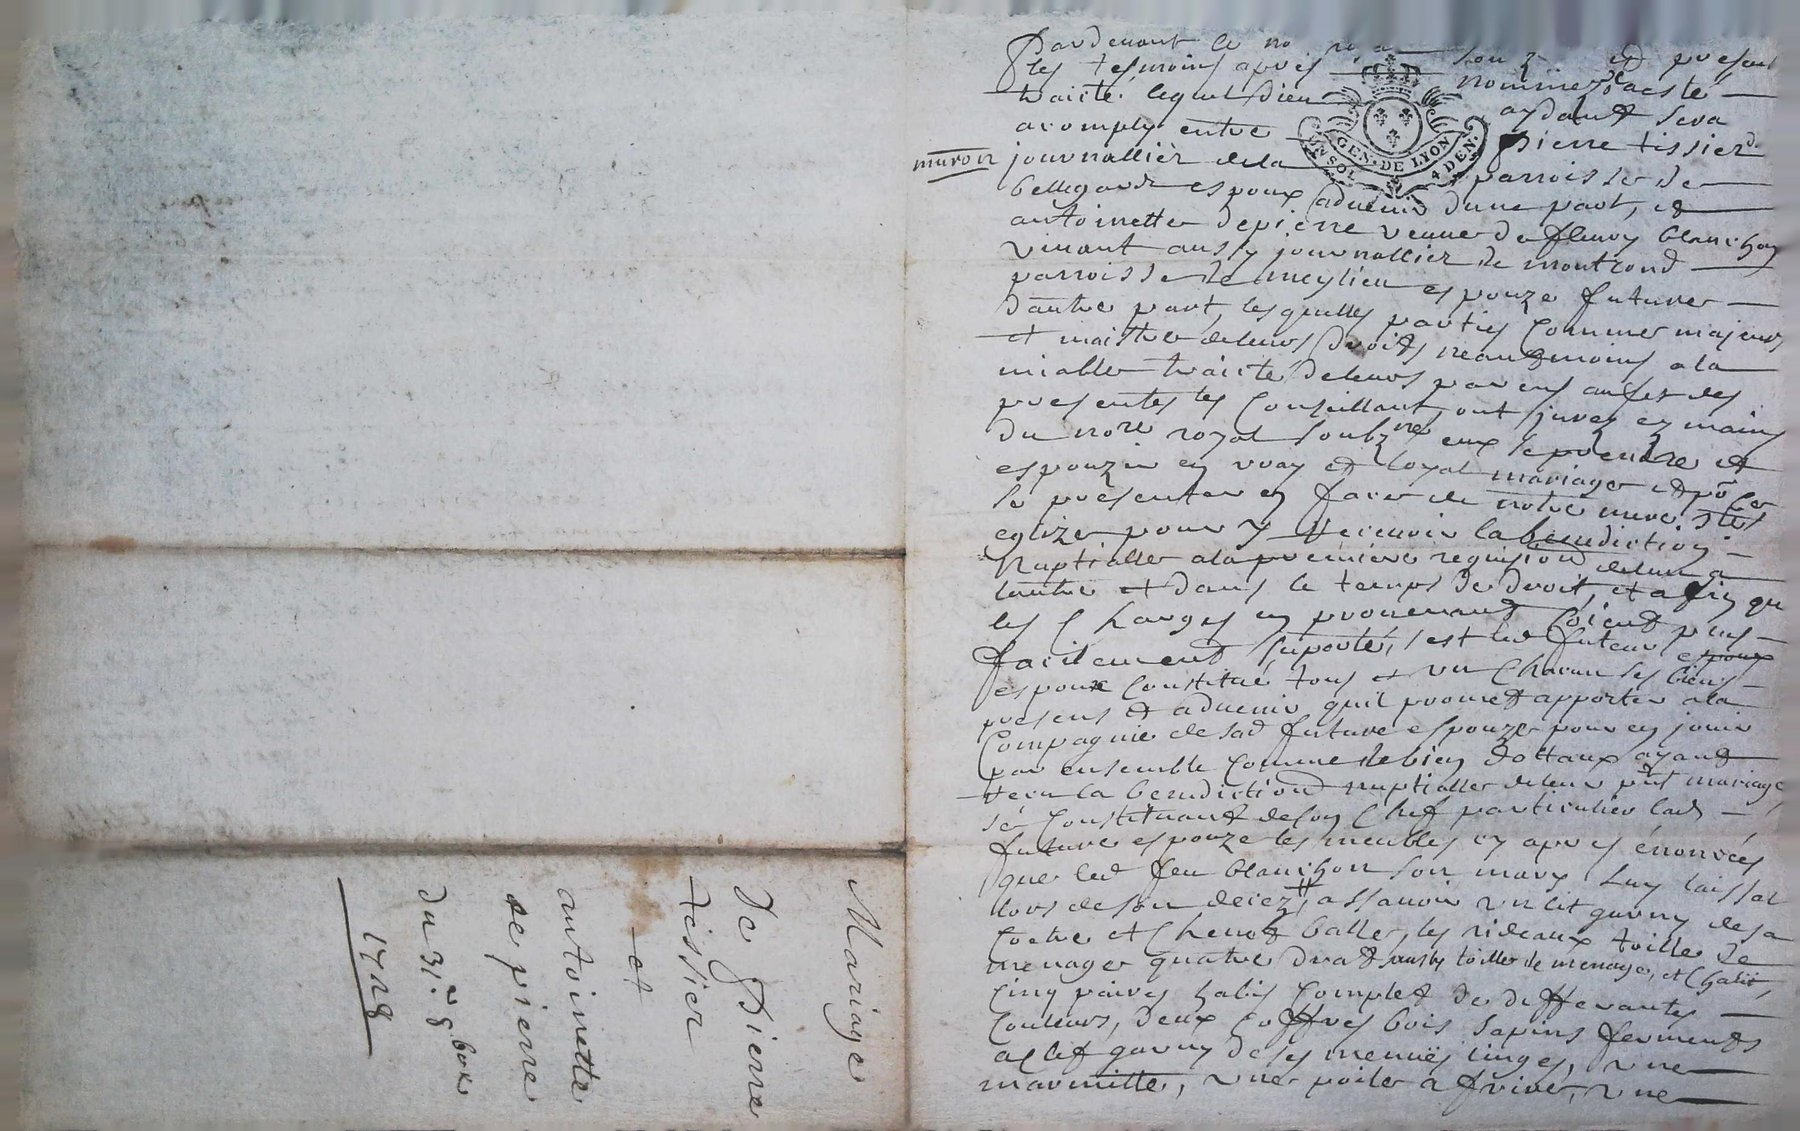 Mariage
de Pierre
tissier
et
antoinette
de pierre
du 31e 8bore
1728
muron
GEN. DE LYON
UN SOL 4 DEN.
Pardevant le no re soubz et present
les tesmoins apres nommez a esté
traicté lequel Dieu aydant sera
acomply entre Pierre tissier
journallier de la parroisse de
bellegarde espoux advenir dune part, et
antoinette depierre veuve de fleury blanchon
vivant aussy journallier de montrond
parroisse de meylieu espouze future
dautre part, lesquelles parties comme majeurs
et maistre de leurs droits neantmoins a la
miable traicté de leurs parens au fet des
presentes les conseillant, ont jurez es mains
du nore royal soubzné eux se prendre et
espouzer en vray et loyal mariage et po ce
se presenter en face de notre mere ste
eglize pour y recevoir la benediction
Nuptialle a la premiere requisition de lun a
lautre et dans le temps de droit, et afin que
les charges en provenant soient plus
facilement suporté, sest led futeur espoux
espoux constitué tous et un chacun ses biens
presens et advenir quil promet apporter a la
compagnie de sad future espouze pour en jouir
par ensemble comme de bien dottaux ayant
receu la benediction nuptialle de leur pnt mariage
se constituant de son chef particulier lad
future espouze les meubles cy apres énoncées
que led feu blanchon son mary luy laissat
lors de son decez, assavoir un lit garny de sa
coetre et chevet balle, les rideaux toille de
menage quatre drat aussy toille de menage, et chalit,
cinq paires habis complet de differantes
couleurs, deux coffres bois sapins ferments
a clef garny de ses menües linges, une
marmitte, une poile a frire, une